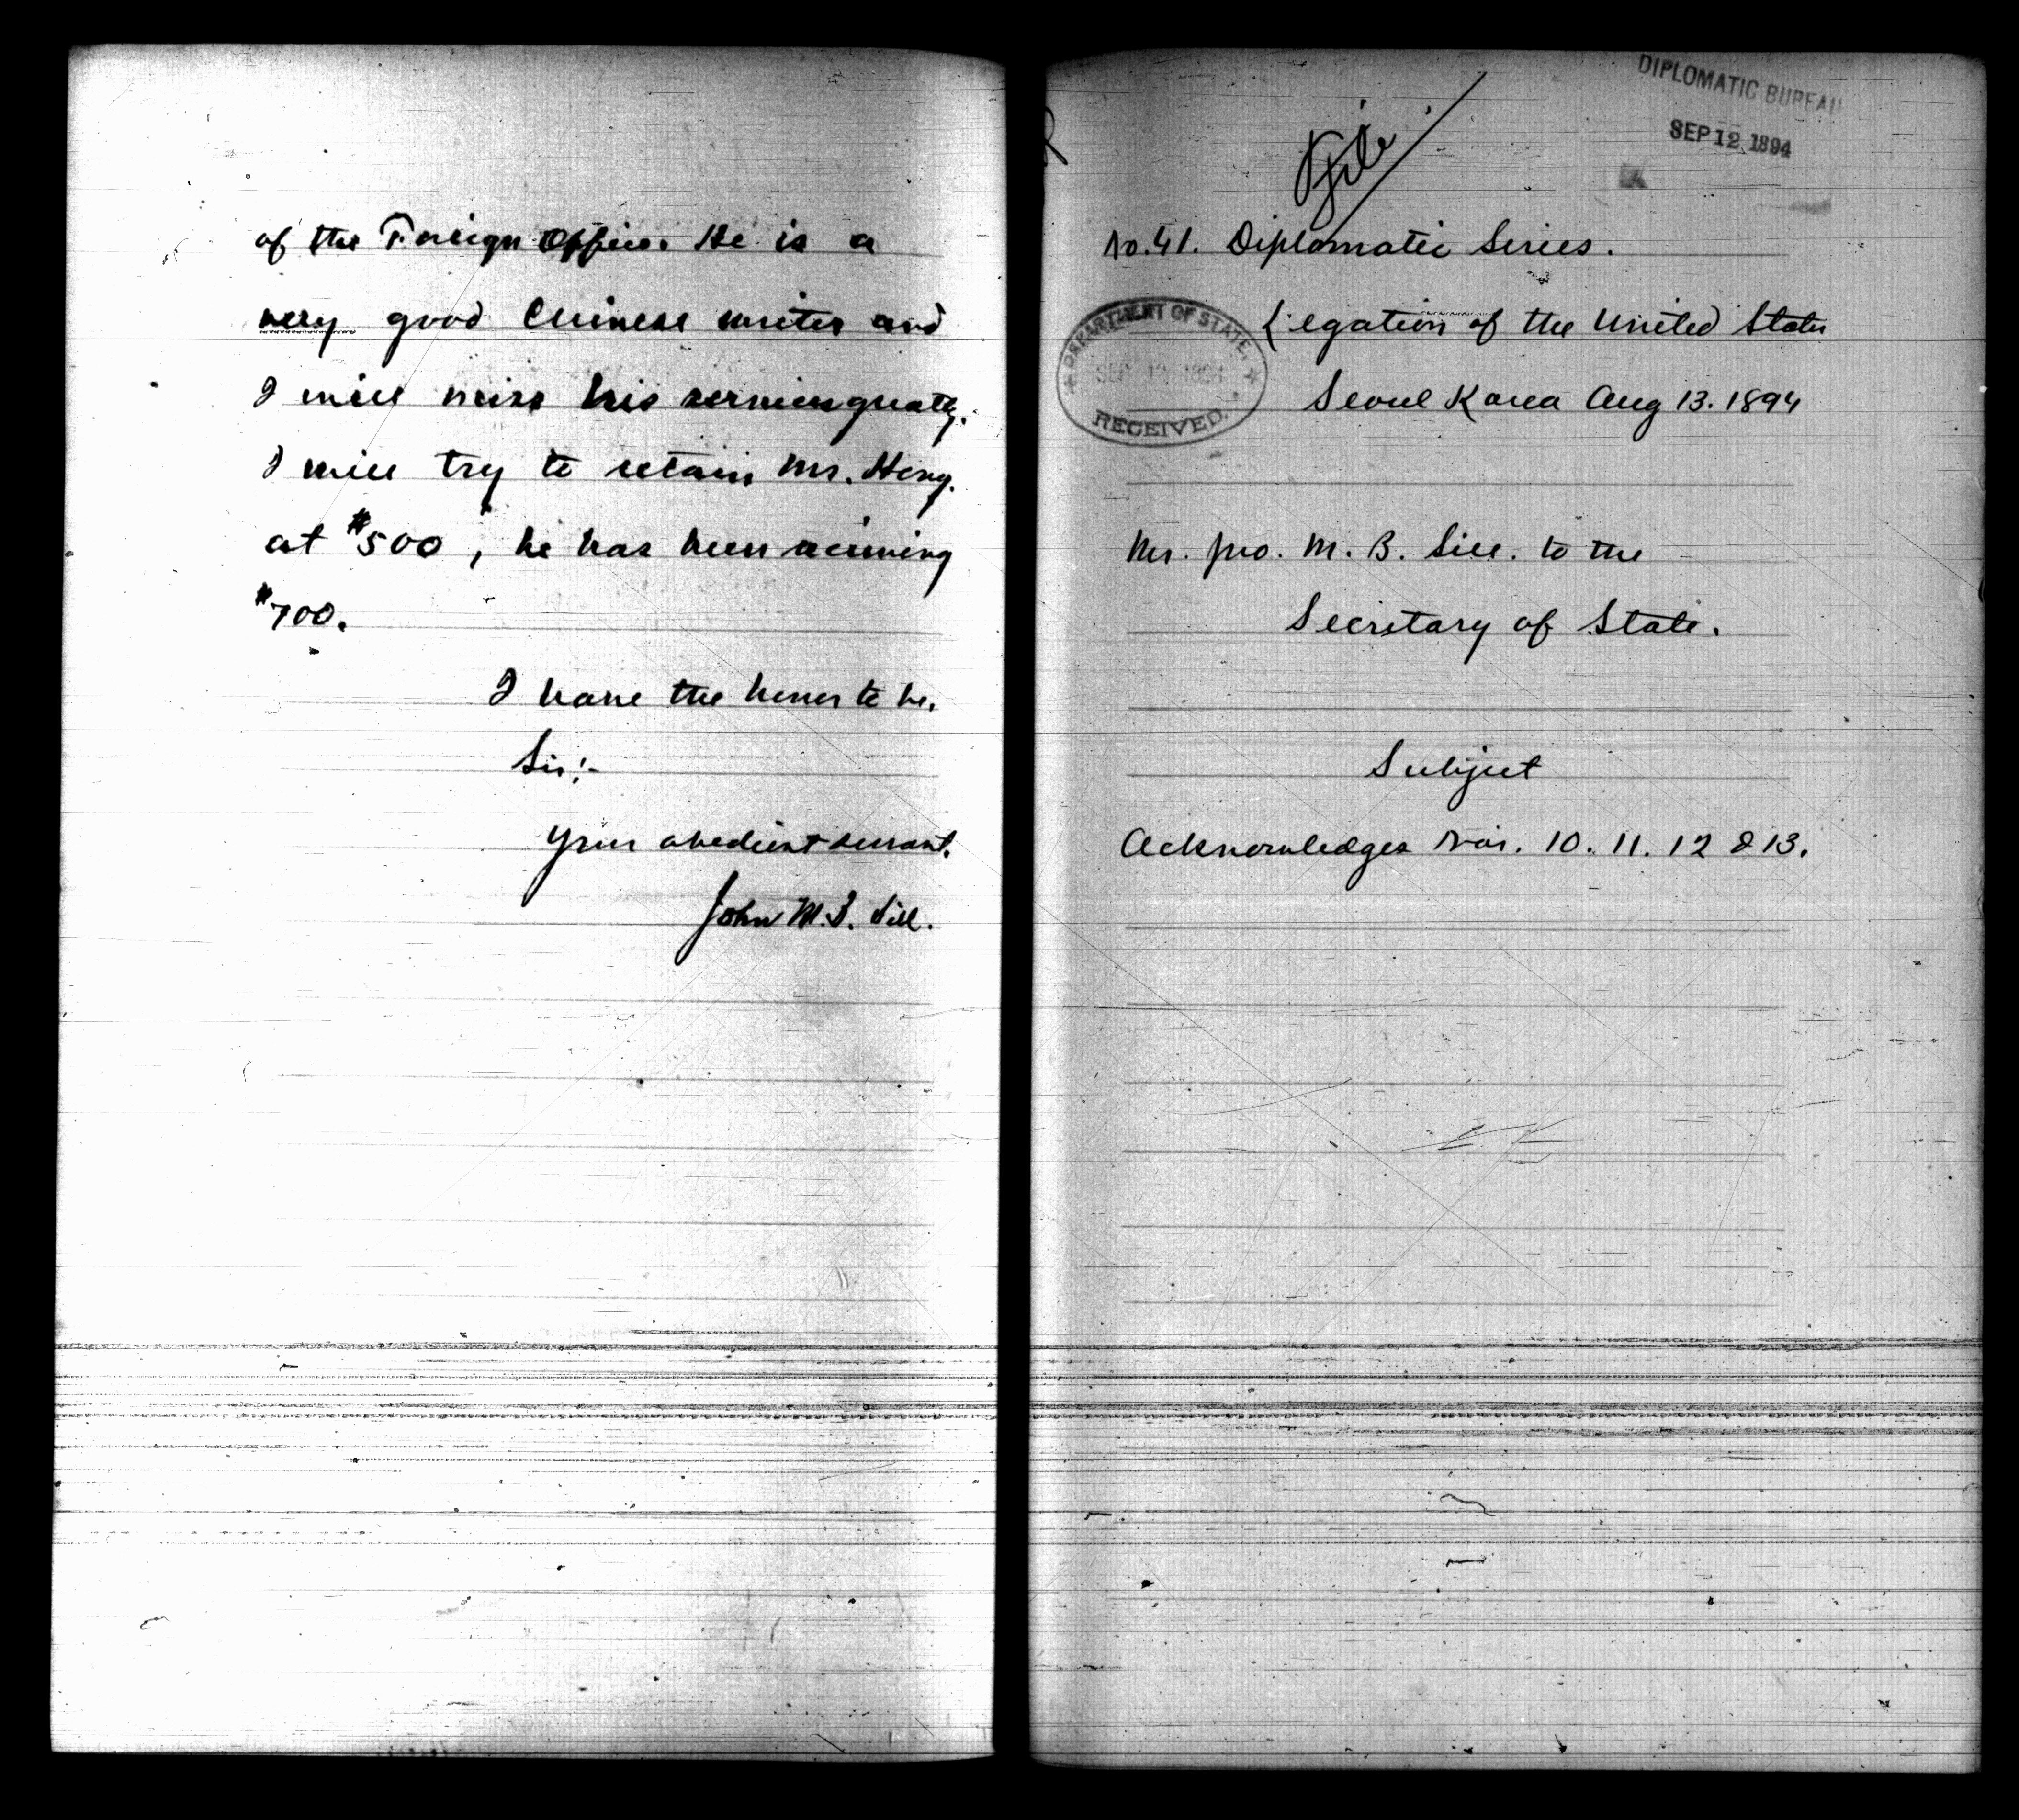 of the Foreign Office. He is a
very good Chinese writer and
I will miss his services greatly.
I will try to retain Mr. Hong.
at $500, he has been receiving
$700.
I have the honor to be.
Sir:-
Your obedient servant.
John M.B. Sill.
DIPLOMATIC BUREAU
SEP 12 1894
File
No. 41. Diplomatic Series.
Legation of the United States
DEPARTMENT OF STATE,
SEP 12 1894
RECEIVED.
Seoul Korea Aug 13. 1894
Mr. Jno. M. B. Sill. to the
Secretary of State.
Subject
Acknowledges Nos. 10. 11. 12 & 13.